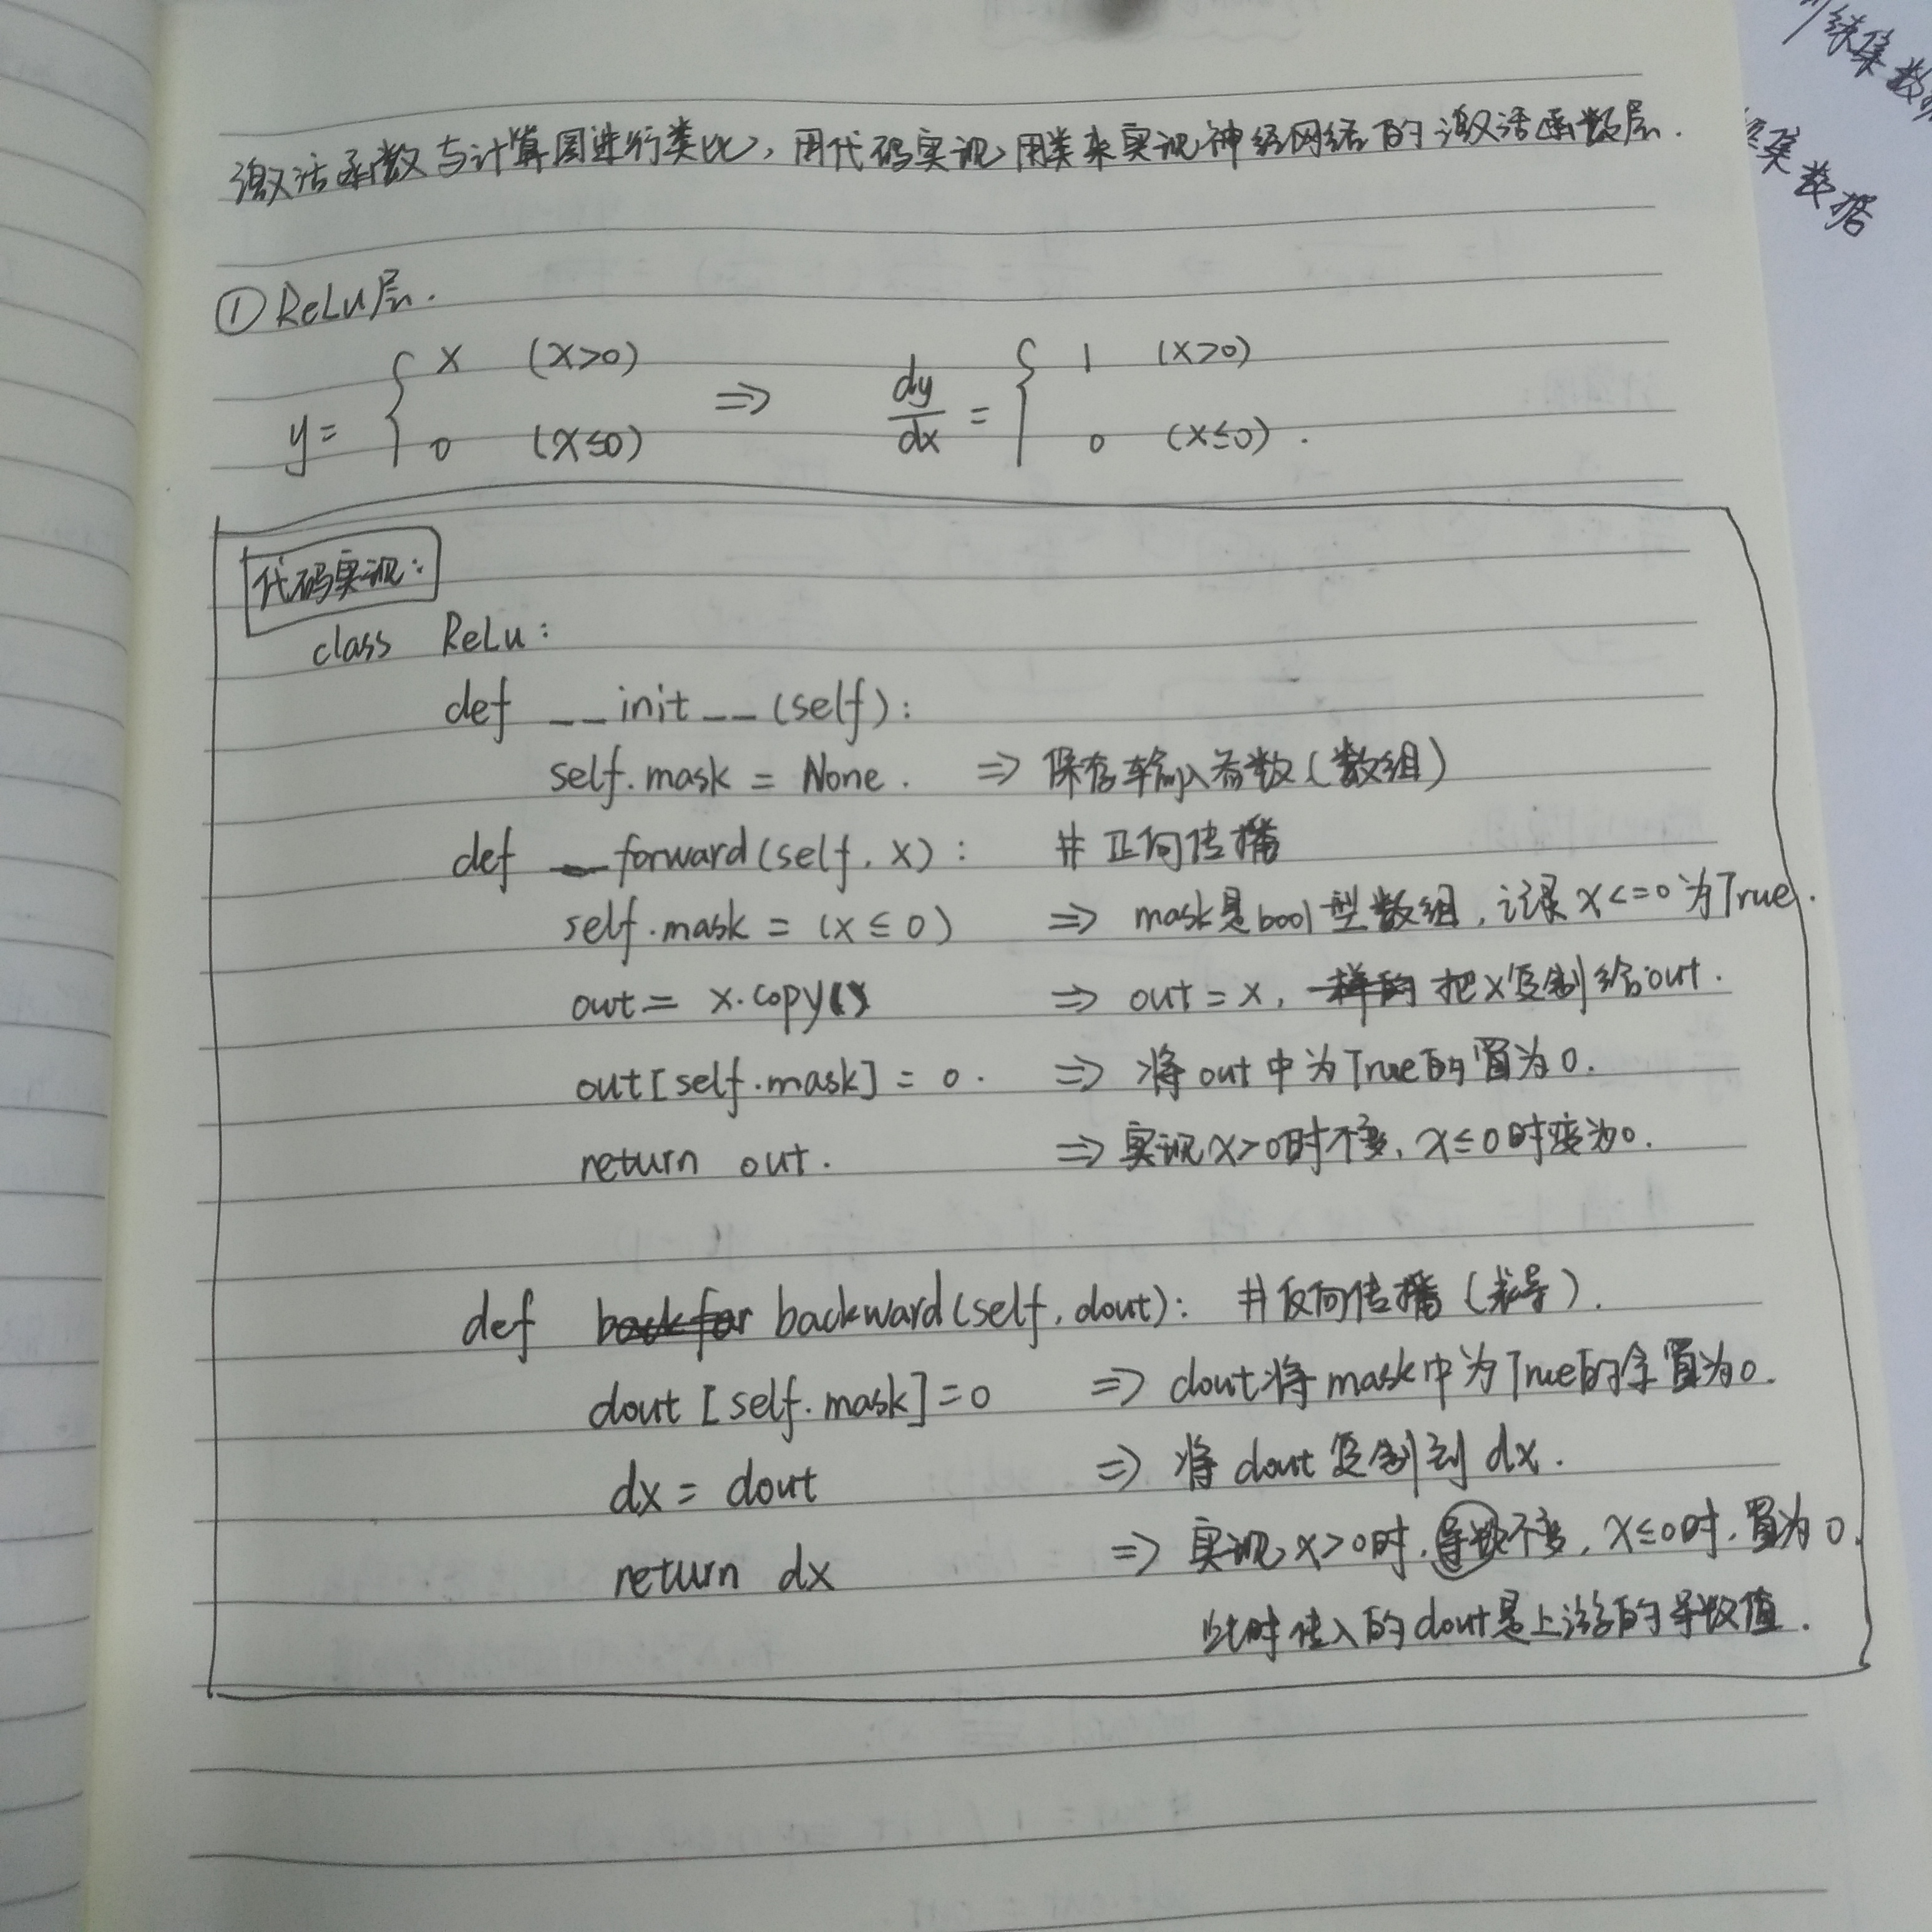 激活函数与计算图进行类比，用代码实现，用类来实现神经网络的激活函数层.
①ReLu层.
y= { x (x>0)
0 (x≤0)
⇒ dy/dx = { 1 (x>0)
0 (x≤0) .
代码实现：
class ReLu:
def __init__(self):
self.mask = None. ⇒ 保存输入参数(数组)
def forward(self, x): # 正向传播
self.mask = (x≤0) ⇒ mask是bool型数组，记录x<=0为True.
out = x.copy() ⇒ out=x, 把x复制给out.
out[self.mask] = 0. ⇒ 将out中为True的置为0.
return out. ⇒ 实现x>0时不变，x≤0时变为0.
def backward(self, dout): #反向传播(求导).
dout[self.mask]=0 ⇒ dout将mask中为True的全置为0.
dx = dout ⇒ 将dout复制到dx.
return dx ⇒ 实现x>0时，导数不变，x≤0时，置为0.
此时传入的dout是上游的导数值.
集数据